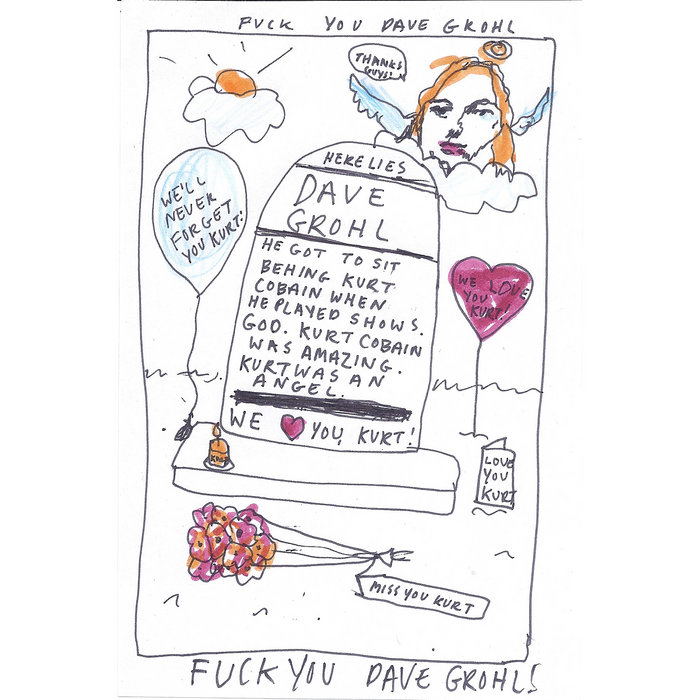 FUCK YOU DAVE GROHL
THANKS
GUYS!
HERE LIES
DAVE
GROHL
HE GOT TO SIT
BEHING KURT
COBAIN WHEN
HE PLAYED SHOWS.
GOD. KURT COBAIN
WAS AMAZING.
KURT WAS AN
ANGEL.
WE YOU, KURT!
WE'LL
NEVER
FORGET
YOU KURT!
WE LOVE
YOU
KURT!
LOVE
YOU
KURT
MISS YOU KURT
FUCK YOU DAVE GROHL!